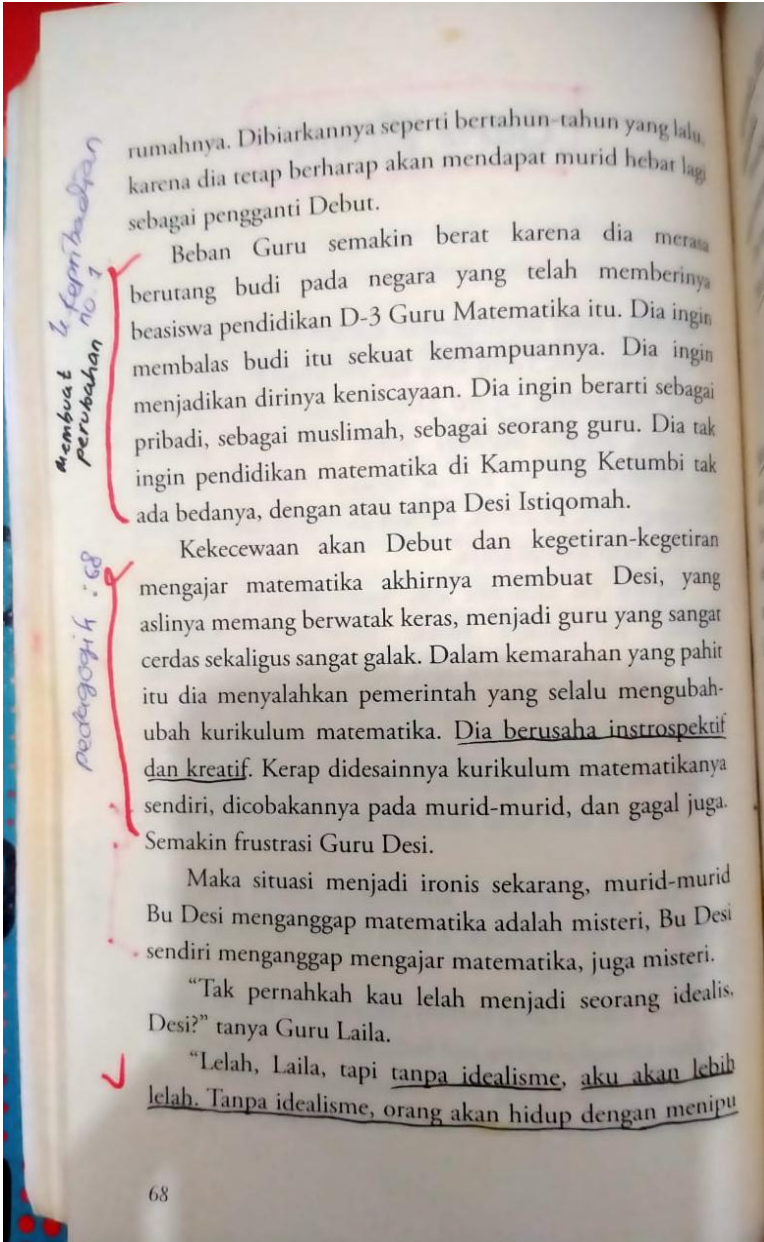 rumahnya. Dibiarkannya seperti bertahun-tahun yang lalu,
karena dia tetap berharap akan mendapat murid hebat lagi
sebagai pengganti Debut.
Beban Guru semakin berat karena dia merasa
berutang budi pada negara yang telah memberinya
beasiswa pendidikan D-3 Guru Matematika itu. Dia ingin
membalas budi itu sekuat kemampuannya. Dia ingin
menjadikan dirinya keniscayaan. Dia ingin berarti sebagai
pribadi, sebagai muslimah, sebagai seorang guru. Dia tak
ingin pendidikan matematika di Kampung Ketumbi tak
ada bedanya, dengan atau tanpa Desi Istiqomah.
Kekecewaan akan Debut dan kegetiran-kegetiran
mengajar matematika akhirnya membuat Desi, yang
aslinya memang berwatak keras, menjadi guru yang sangat
cerdas sekaligus sangat galak. Dalam kemarahan yang pahit
itu dia menyalahkan pemerintah yang selalu mengubah-
ubah kurikulum matematika. Dia berusaha instrospektif
dan kreatif. Kerap didesainnya kurikulum matematikanya
sendiri, dicobakannya pada murid-murid, dan gagal juga.
Semakin frustrasi Guru Desi.
Maka situasi menjadi ironis sekarang, murid-murid
Bu Desi menganggap matematika adalah misteri, Bu Desi
sendiri menganggap mengajar matematika, juga misteri.
"Tak pernahkah kau lelah menjadi seorang idealis,
Desi?" tanya Guru Laila.
"Lelah, Laila, tapi tanpa idealisme, aku akan lebih
lelah. Tanpa idealisme, orang akan hidup dengan menipu
68
kepribadian
no. 1
membuat
perubahan
pedagogik : 68